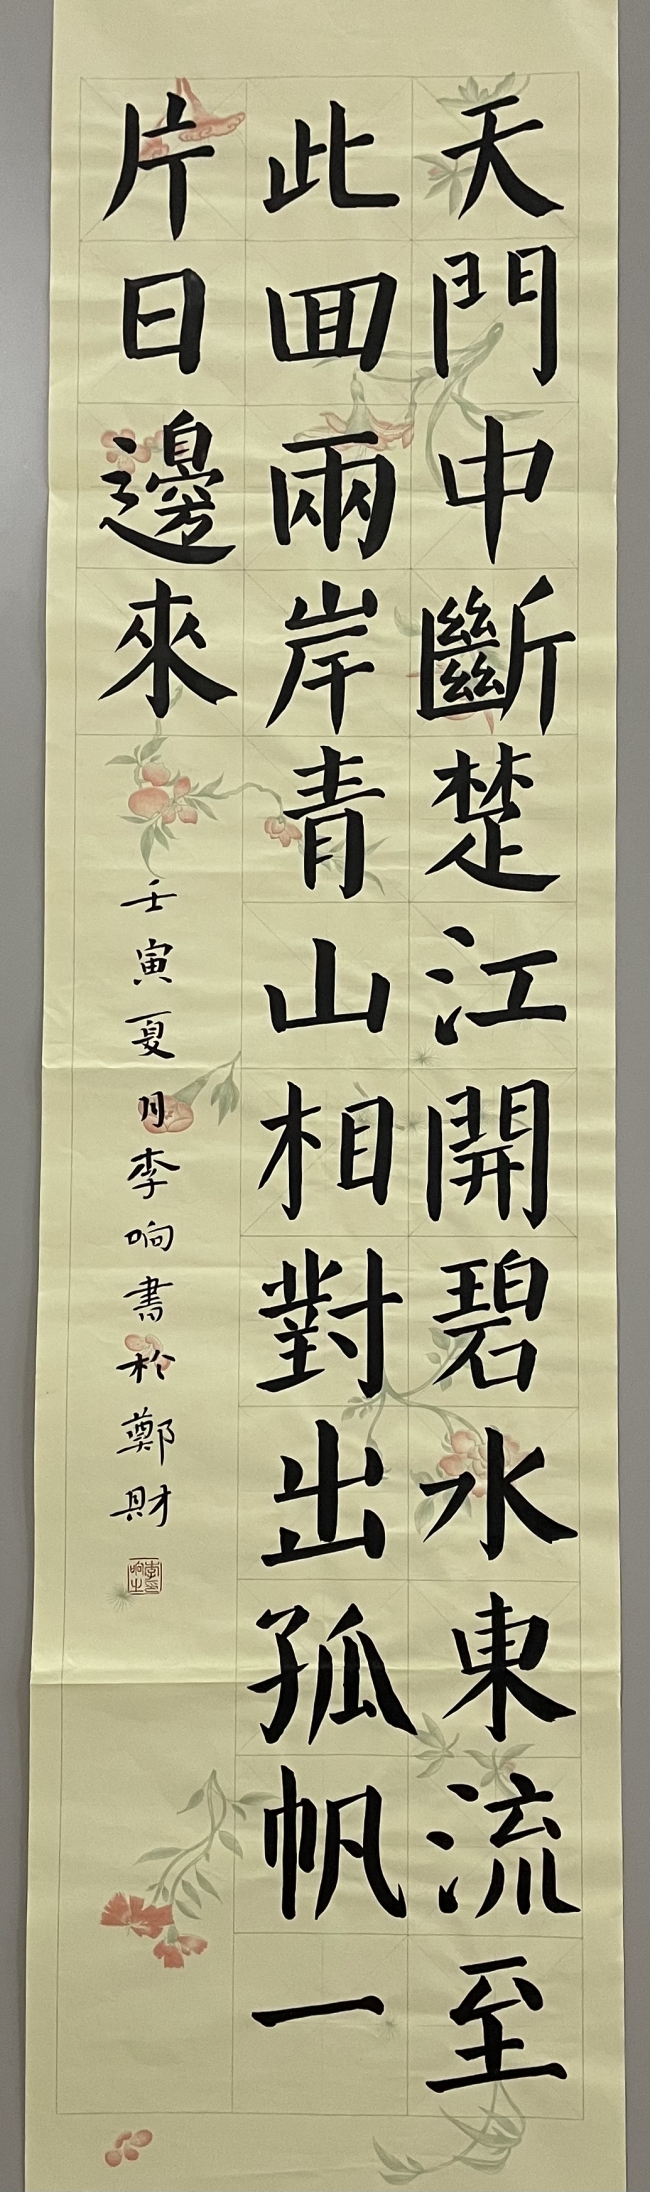 天門中斷楚江開碧水東流至
此回兩岸青山相對出孤帆一
片日邊來
壬寅夏月李响書於鄭財